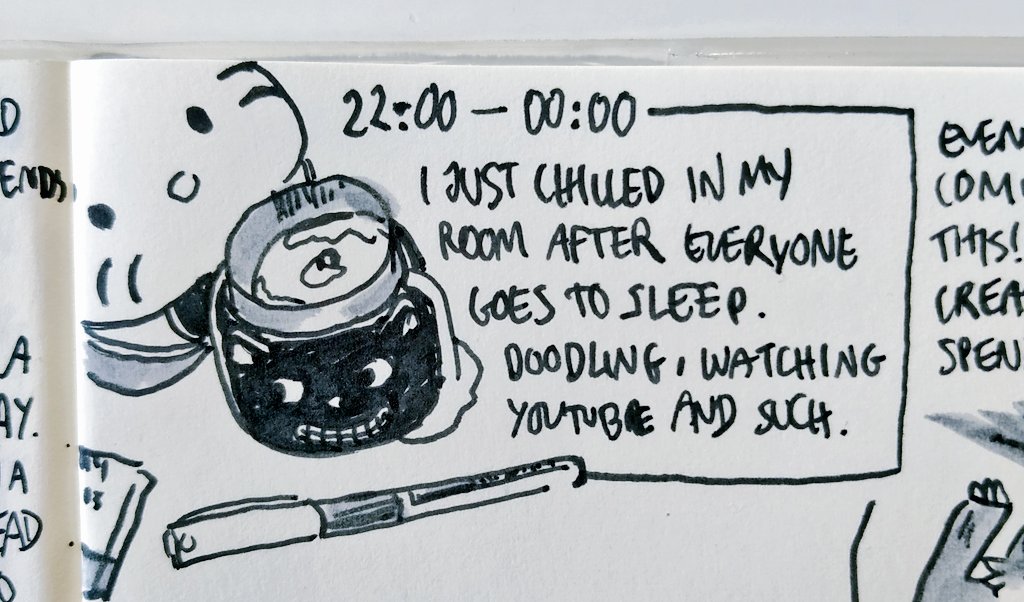 22:00 — 00:00
I JUST CHILLED IN MY
ROOM AFTER EVERYONE
GOES TO SLEEP.
DOODLING, WATCHING
YOUTUBE AND SUCH.
D
ENDS,
A
AY.
A
EAD
O
EVEN
COM
THIS!
CREA
SPEN